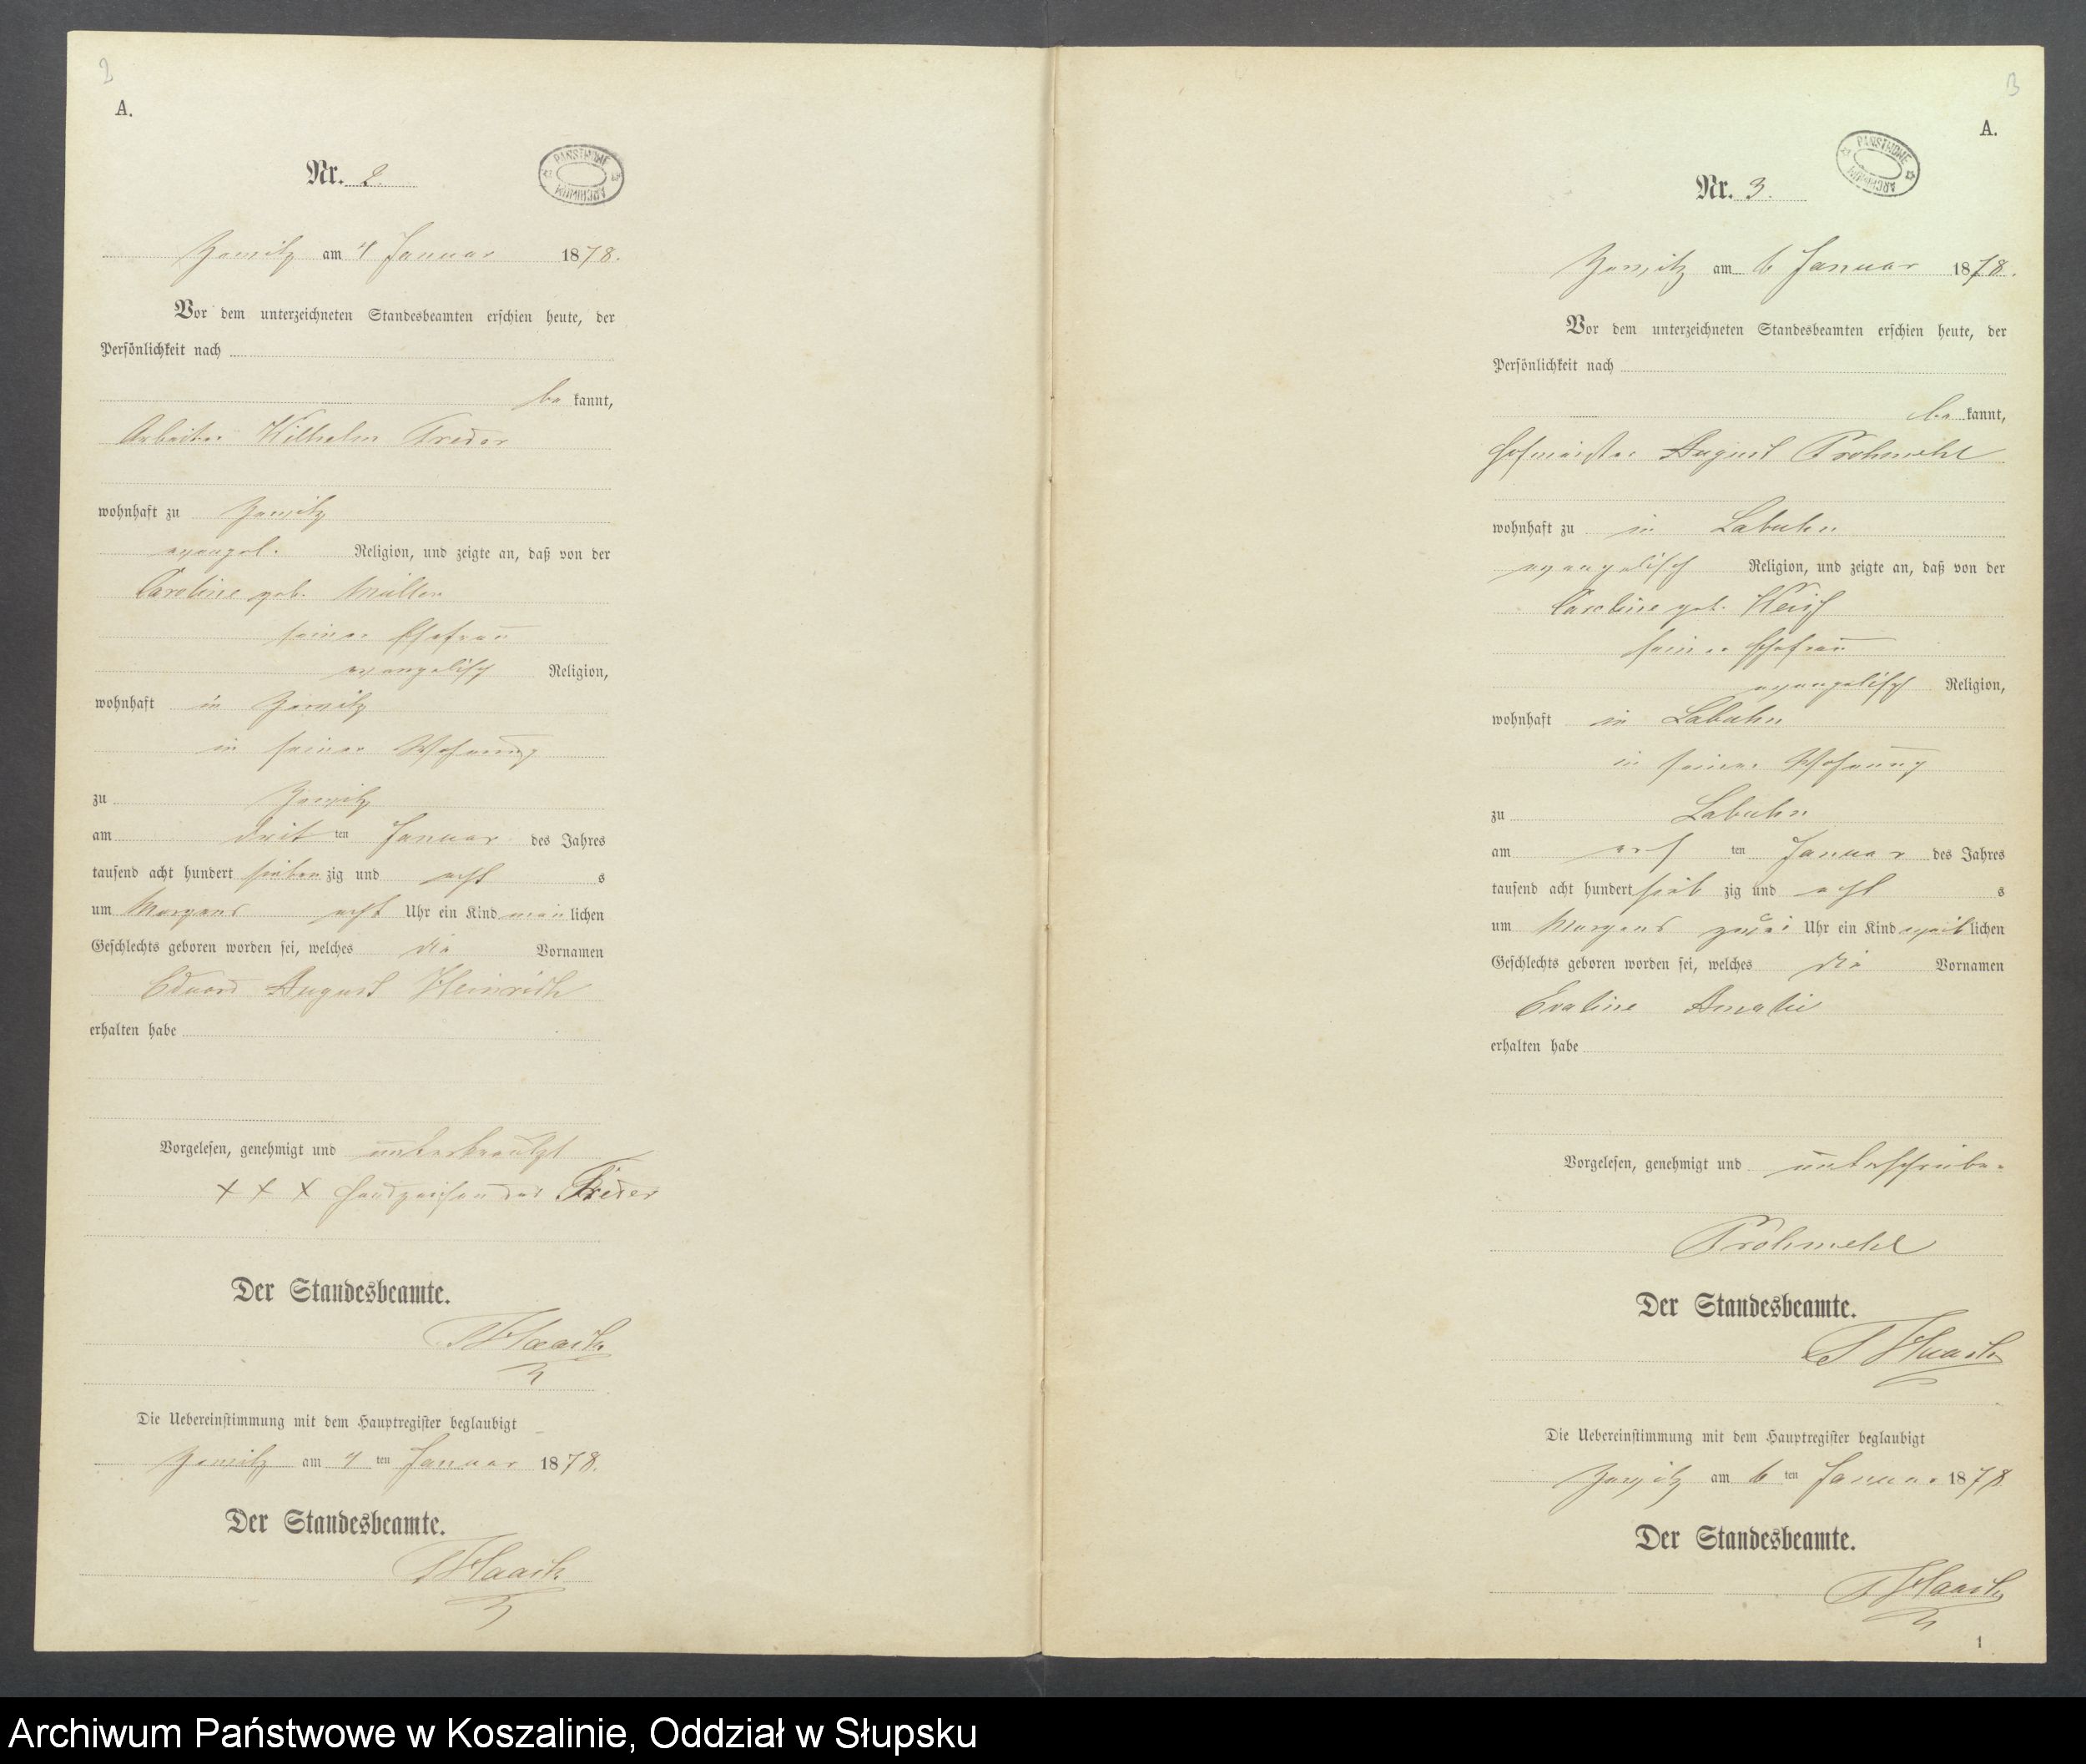 2
A.
Nr. 2.
PAŃSTWOWE ARCHIWUM
am 4 Januar 1878.
Vor dem unterzeichneten Standesbeamten erschien heute, der
Persönlichkeit nach
be kannt,
Arbeiter Wilhelm Treder
wohnhaft zu
evangel. Religion, und zeigte an, daß von der
Caroline geb. Müller
seiner Ehefrau
evangelisch Religion,
wohnhaft in
in seiner Wohnung
zu
am drit ten Januar des Jahres
tausend acht hundert sieben zig und acht s
um Morgens acht Uhr ein Kind män lichen
Geschlechts geboren worden sei, welches die Vornamen
Eduard August Heinrich
erhalten habe
Vorgelesen, genehmigt und unterkreuzt
+ + + Handzeichen des Treder
Der Standesbeamte.
Haack
Die Uebereinstimmung mit dem Hauptregister beglaubigt
am 4 ten Januar 1878.
Der Standesbeamte.
Haack
3
A.
PAŃSTWOWE ARCHIWUM
Nr. 3.
am 6 Januar 1878.
Vor dem unterzeichneten Standesbeamten erschien heute, der
Persönlichkeit nach
be kannt,
Hofmeister August Pröhmehl
wohnhaft zu in Labuhn
evangelisch Religion, und zeigte an, daß von der
Caroline geb.
seiner Ehefrau
evangelisch Religion,
wohnhaft in Labuhn
in seiner Wohnung
zu Labuhn
am ers ten Januar des Jahres
tausend acht hundert sieb zig und acht s
um Morgens zwei Uhr ein Kind weib lichen
Geschlechts geboren worden sei, welches die Vornamen
Evaline Amalie
erhalten habe
Vorgelesen, genehmigt und unterschrieben
Pröhmehl
Der Standesbeamte.
Haack
Die Uebereinstimmung mit dem Hauptregister beglaubigt
am 6 ten Januar 1878
Der Standesbeamte.
Haack
1
Archiwum Państwowe w Koszalinie, Oddział w Słupsku